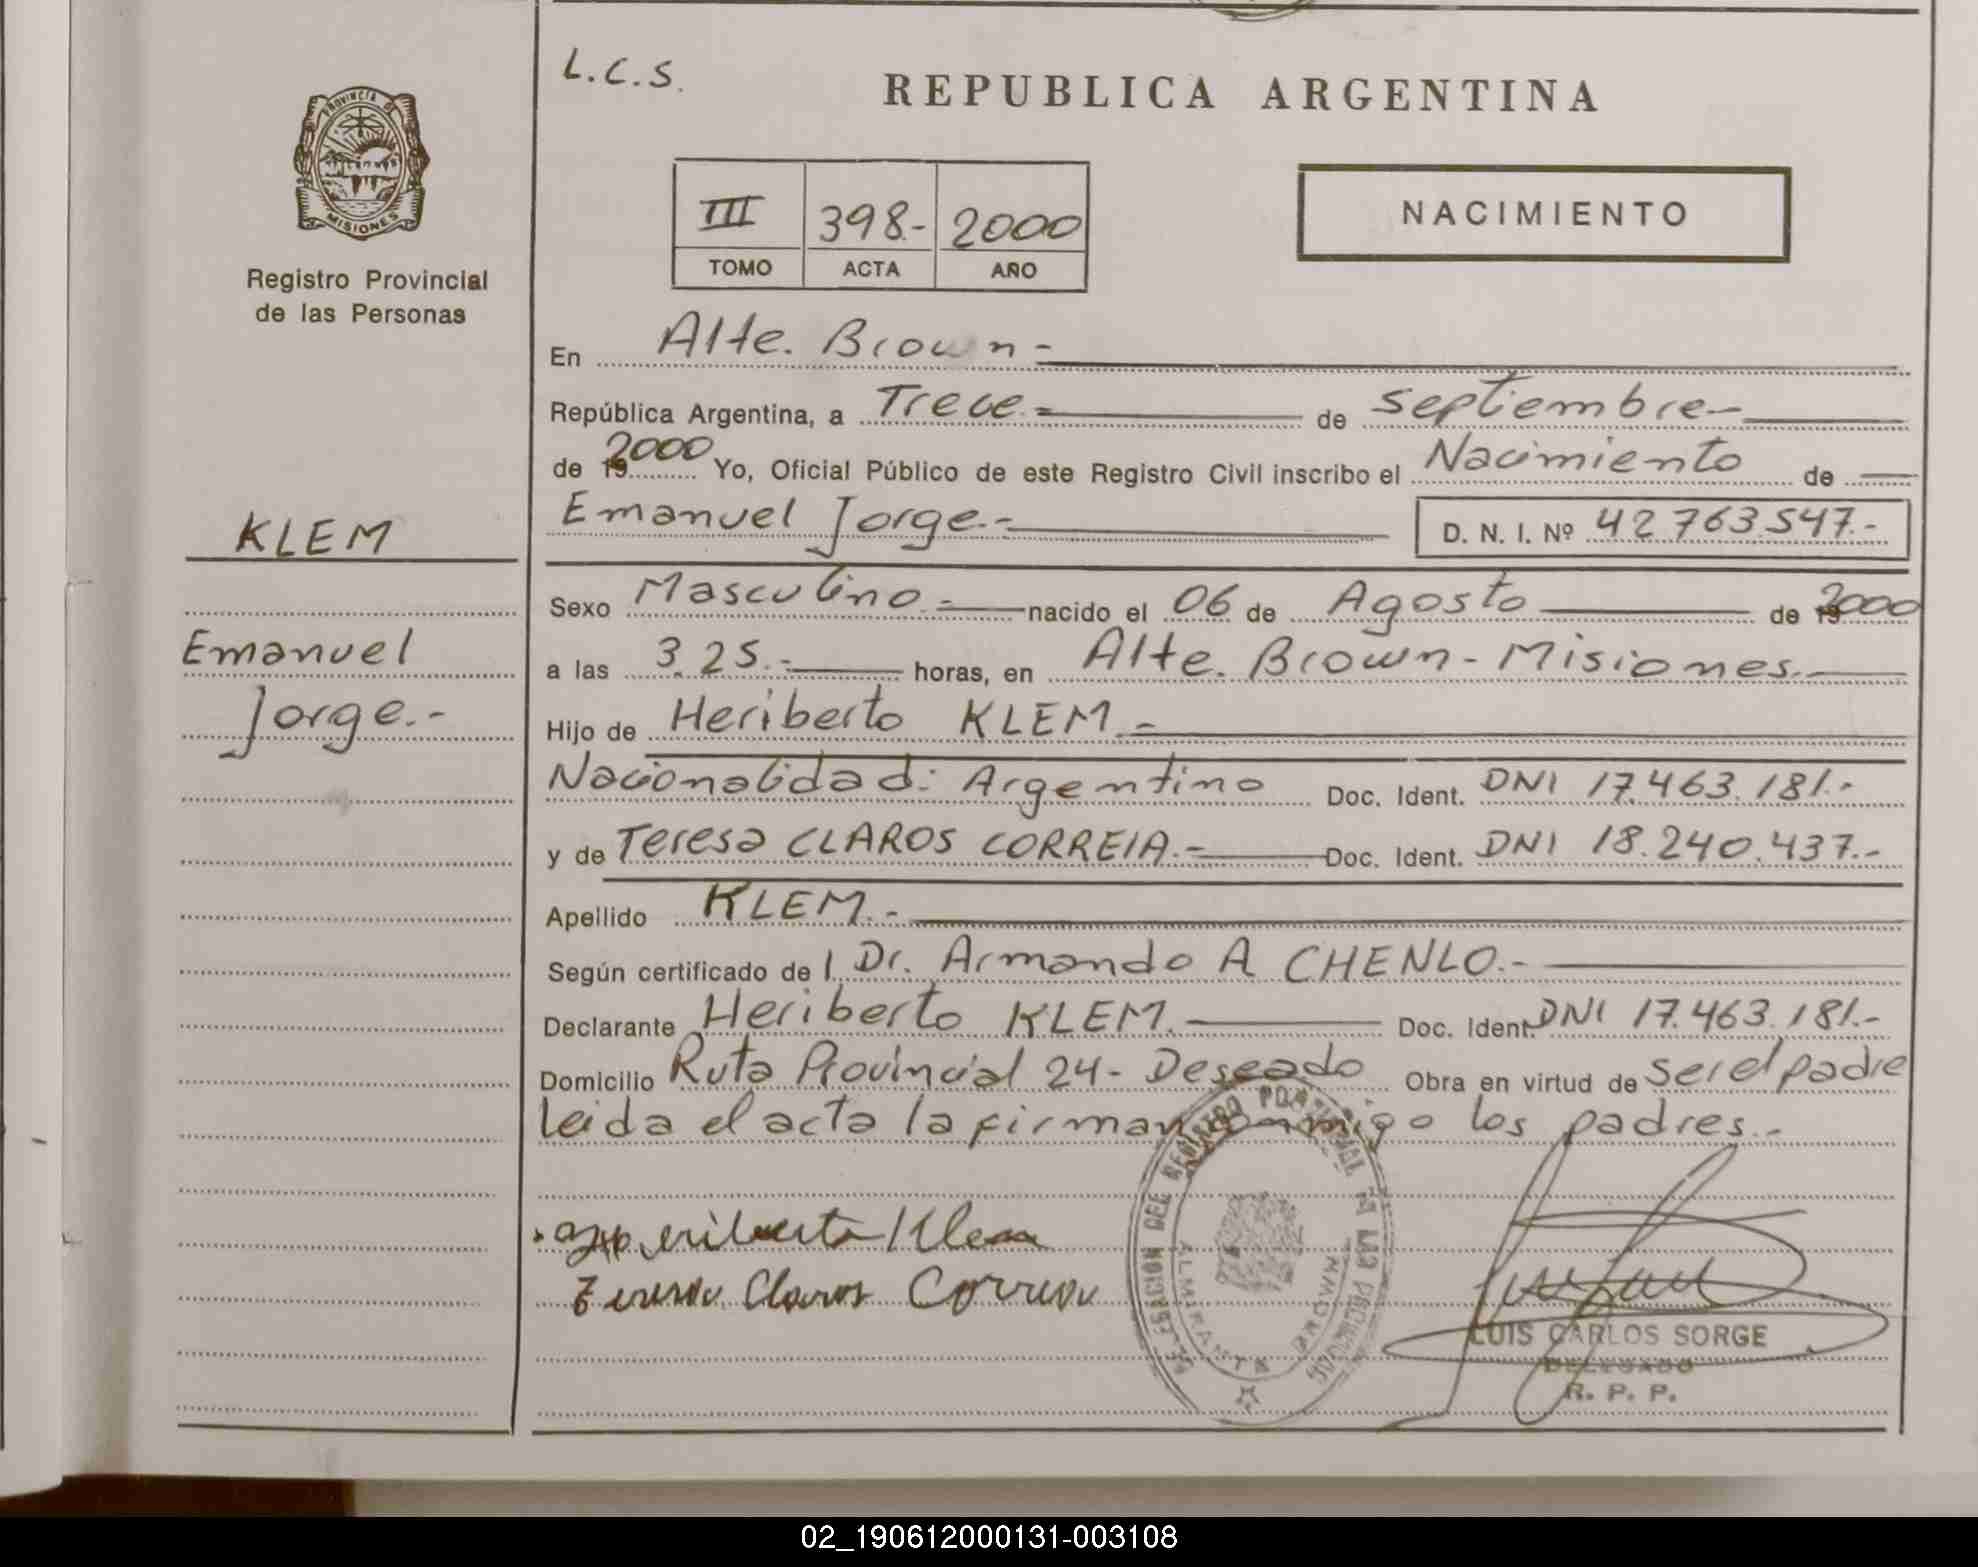 PROVINCIA DE
MISIONES
Registro Provincial
de las Personas
KLEM
Emanuel
Jorge.-
L.C.S.
REPUBLICA ARGENTINA
III 398.- 2000
TOMO ACTA AÑO
NACIMIENTO
En Alte. Brown -
República Argentina, a Trece.- de septiembre-
de 192000 Yo, Oficial Público de este Registro Civil inscribo el Nacimiento de
Emanuel Jorge.- D. N. I. Nº 42.763.547.-
Sexo Masculino.- nacido el 06 de Agosto de 192000
a las 3.25.- horas, en Alte. Brown - Misiones.-
Hijo de Heriberto KLEM.-
Nacionalidad: Argentino Doc. Ident. DNI 17.463.181.-
y de Teresa CLAROS CORREIA.- Doc. Ident. DNI 18.240.437.-
Apellido KLEM.-
Según certificado de l Dr. Armando A CHENLO.-
Declarante Heriberto KLEM. Doc. Ident. DNI 17.463.181.-
Domicilio Ruta Provincial 24 - Deseado Obra en virtud de ser el padre
leida el acta la firman conmigo los padres.-
eriberto Klem
Claros Correia
DELEGACION DEL REGISTRO PROVINCIAL DE LAS PERSONAS
ALMIRANTE BROWN
LUIS CARLOS SORGE
DELEGADO
R. P. P.
02_190612000131-003108